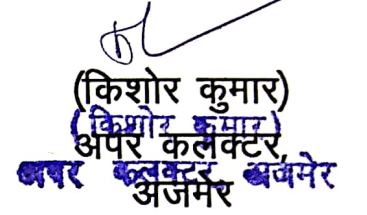 (किशोर कुमार)
(किशोर कुमार)
अपर कलक्टर,
अपर कलक्टर, अजमेर
अजमेर